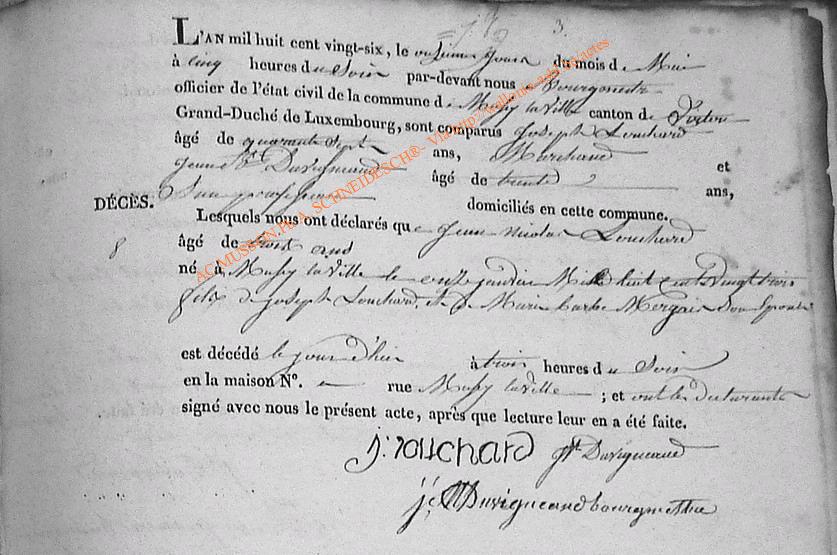 3.
L'AN mil huit cent vingt-six, le onzieme jour du mois de Mai
à cinq heures du Soir par-devant nous Bourgmestre
officier de l'état civil de la commune de Mussy la ville canton de Virton
Grand-Duché de Luxembourg, sont comparus Joseph Louchard
âgé de quarante Sept ans, Marchand et
jean Bte Duvigneaud âgé de trente 2 ans,
San profession domiciliés en cette commune.
DÉCÈS.
Lesquels nous ont déclarés que Jean nicolas Louchard
8
âgé de trois ans
né à Mussy la ville le onze janvier Mil huit cent vingt trois
fils de joseph Louchard et de Marie barbe Mergais Son Epouse
est décédé le jour d'hier à trois heures du Soir
en la maison N°. rue Mussy la ville ; et ont les déclarants
signé avec nous le présent acte, après que lecture leur en a été faite.
j: Louchard jBt Duvigneaud
Duvigneaud bourgmestre
AC MUSSON R&A_SCHNEIDESCH®- Via http://wallonia-
actes